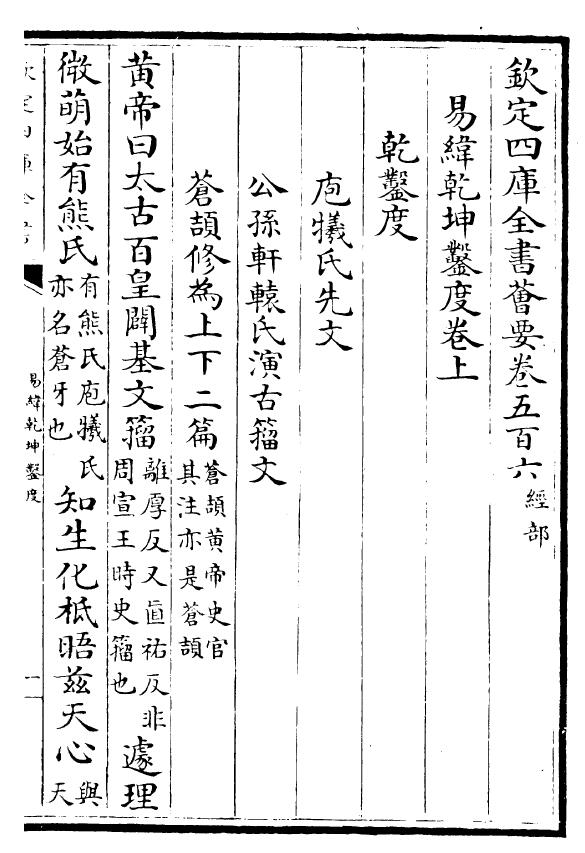 欽定四庫全書薈要卷五百六經部
易緯乾坤鑿度卷上
乾鑿度
庖犧氏先文
公孫軒轅氏演古籀文
蒼頡修為上下二篇蒼頡黄帝史官其注亦是蒼頡
黄帝曰太古百皇闢基文籀離厚反又直祐反非周宣王時史籀也遽理
微萌始有熊氏有熊氏庖犧氏亦名蒼牙也知生化柢晤茲天心與天
易緯乾坤鑿度
一